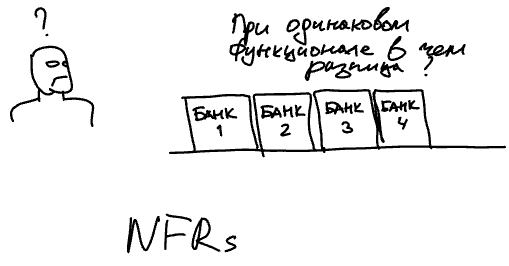 ?
При одинаковом
функционале в чем
разница?
БАНК 1
БАНК 2
БАНК 3
БАНК 4
NFRs